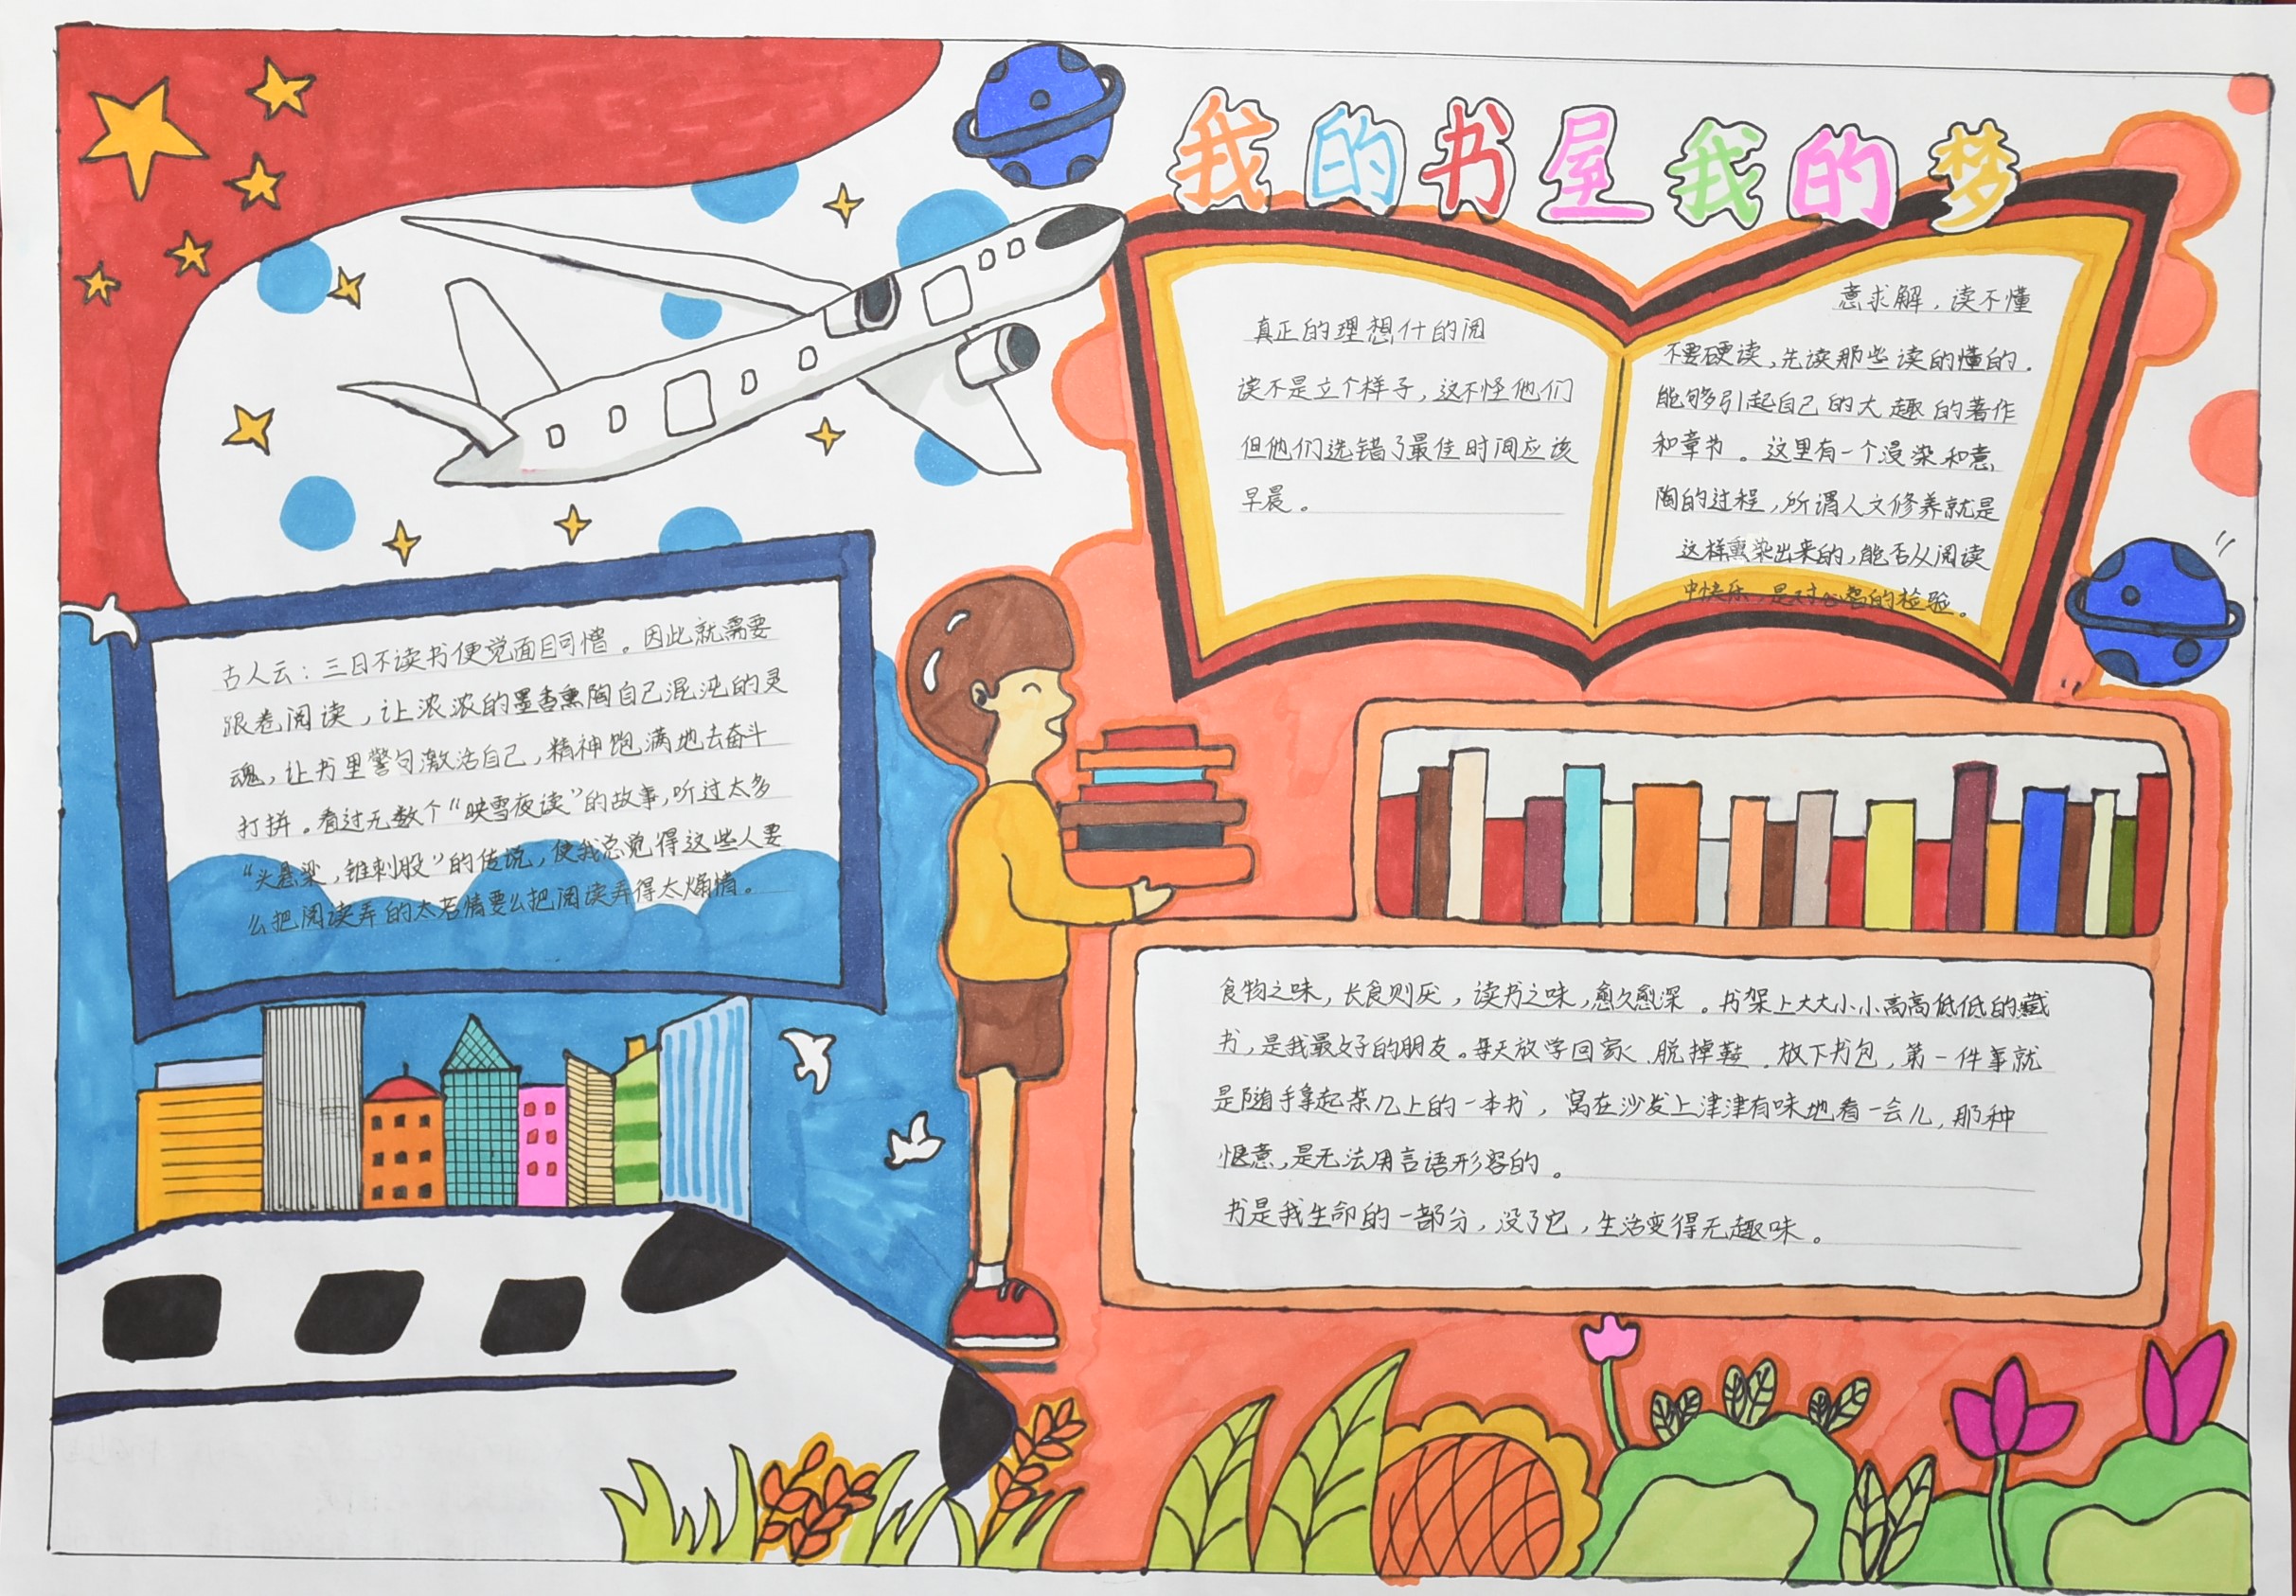 我的书屋我的梦
真正的理想什的阅
读不是立个样子，这不怪他们
但他们选错了最佳时间应该
早晨。
意求解，读不懂
不要硬读，先读那些读的懂的.
能够引起自己的大趣的著作
和章节。这里有一个浸染和意
陶的过程，所谓人文修养就是
这样熏染出来的，能否从阅读
中快乐，是对心智的检验。
古人云：三日不读书便觉面目可憎。因此就需要
跟卷阅读，让浓浓的墨香熏陶自己混沌的灵
魂，让书里警句激活自己，精神饱满地去奋斗
打拼。看过无数个“映雪夜读”的故事，听过太多
“头悬梁，锥刺股”的传说，使我总觉得这些人要
么把阅读弄的太若情要么把阅读弄得太煽情。
食物之味，长食则厌，读书之味，愈久愈深。书架上大大小小高高低低的藏
书，是我最好的朋友。每天放学回家、脱掉鞋．放下书包，第一件事就
是随手拿起茶几上的一本书，窝在沙发上津津有味地看一会儿，那种
惬意，是无法用言语形容的。
书是我生命的一部分，没了它，生活变得无趣味。